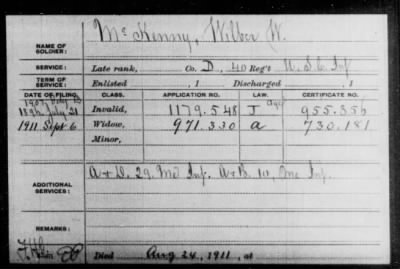 Mc Kenny, Wilber W.
NAME OF SOLDIER:
SERVICE: Late rank, Co. D, 40 Reg't U.S.C. Inf
TERM OF SERVICE: Enlisted , 1 Discharged , 1
DATE OF FILING. CLASS. APPLICATION NO. LAW. CERTIFICATE NO.
July 21 Invalid, 1179.548 J 955.356
1911 Sept 6 Widow, 971.330 a 730.181
Minor,
ADDITIONAL SERVICES: A & D. 29. Mo Inf. A & B. 10, Inf.
REMARKS:
Died Aug 24, 1911, at